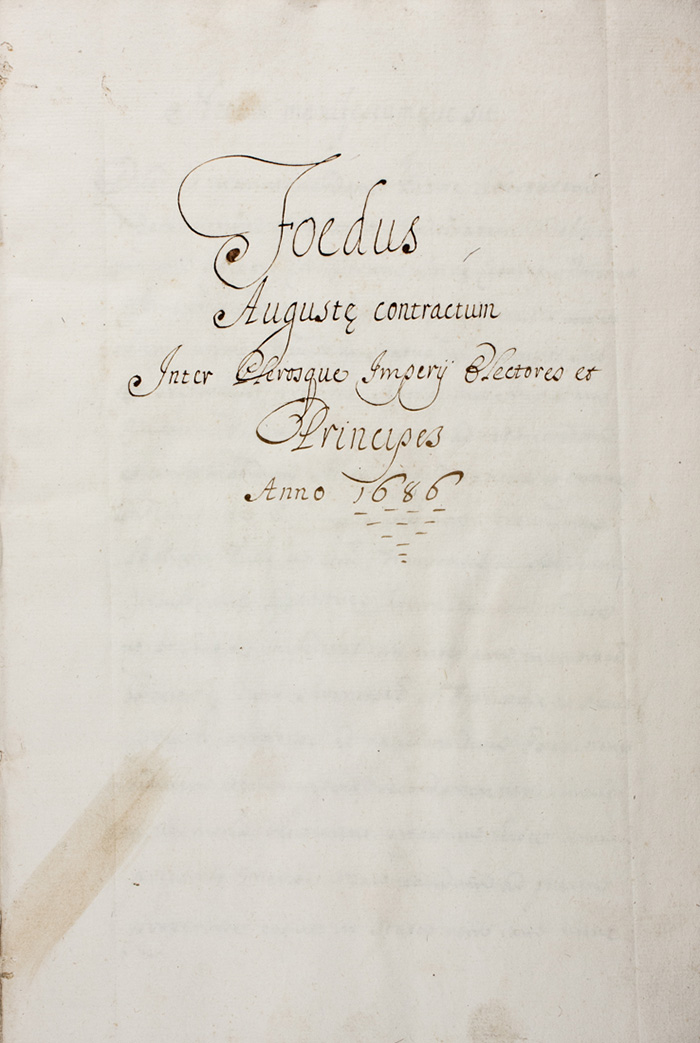 Foedus
Augustę contractum
Inter Plerosque Imperÿ Electores et
Principes
Anno 1686